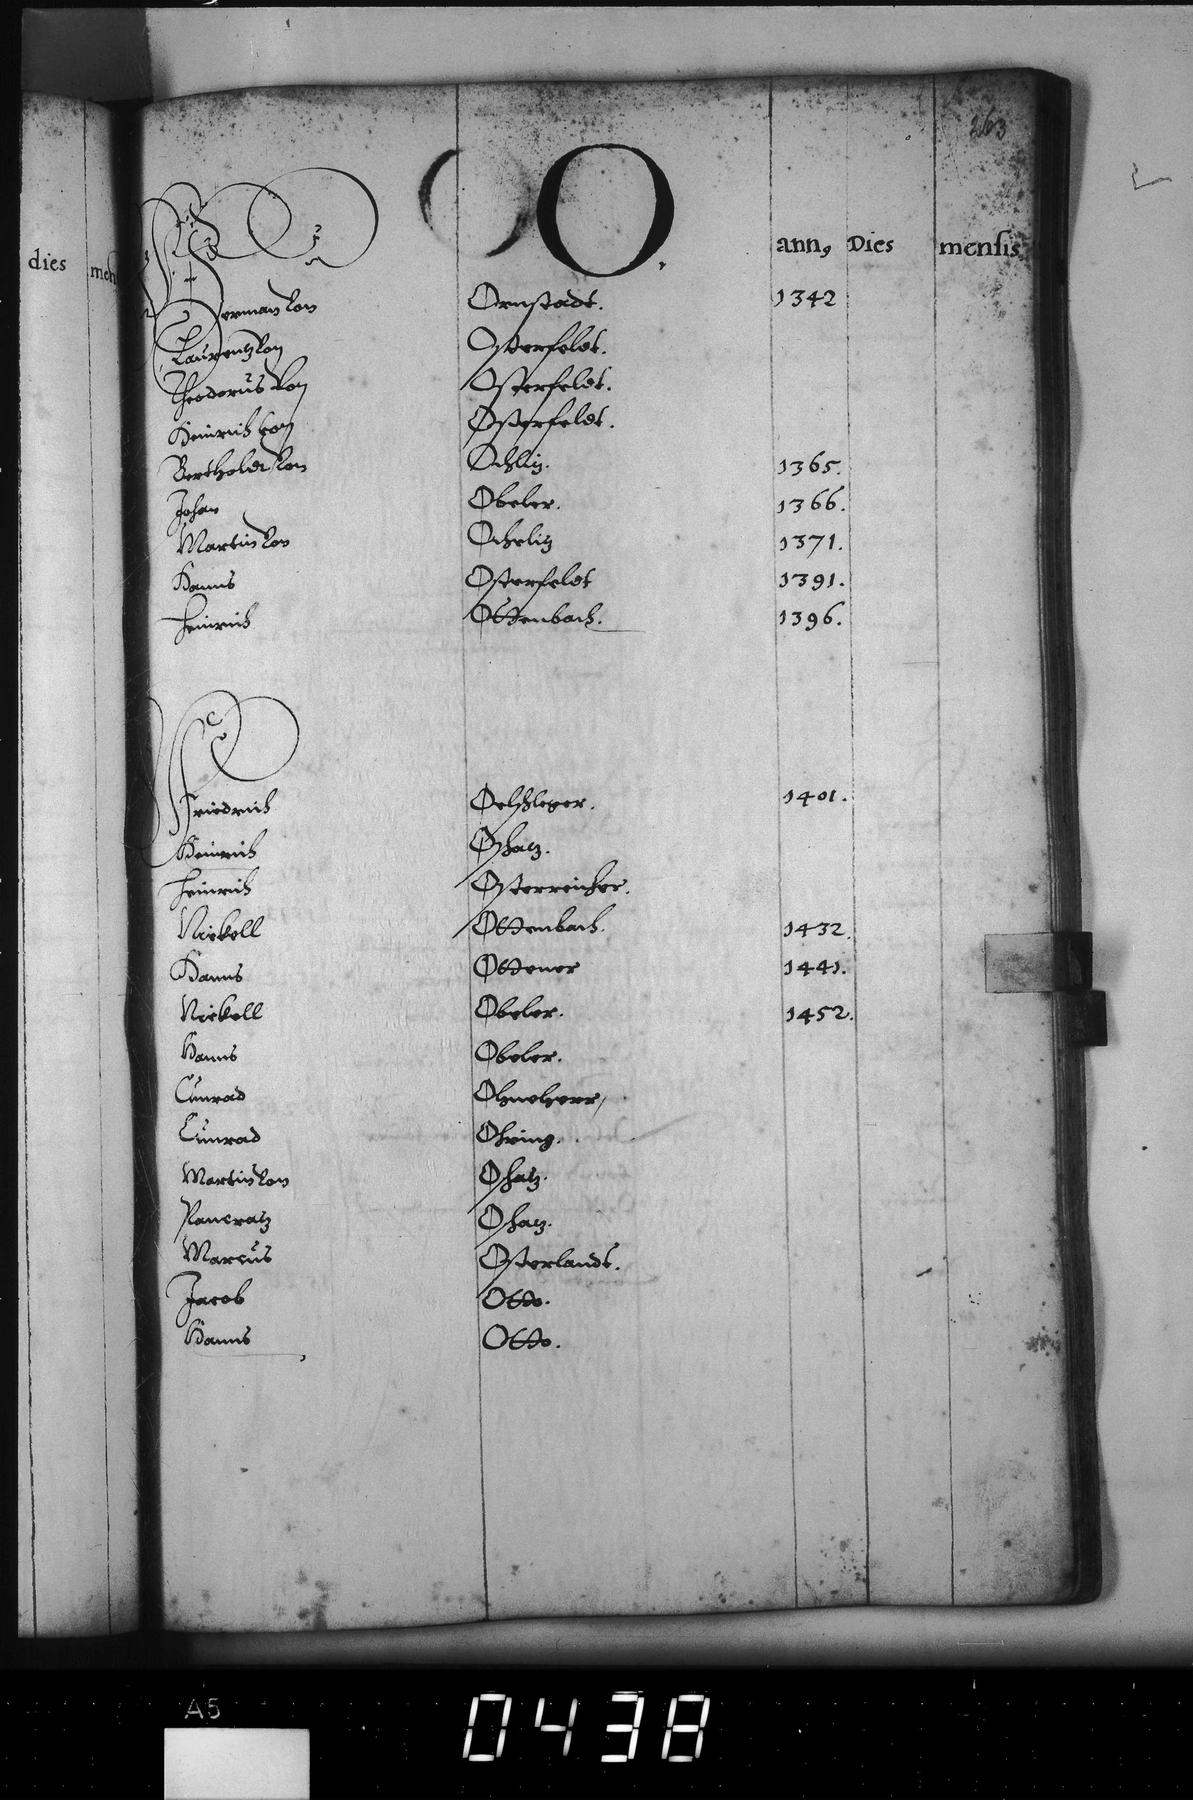 263
O.
dies
men
ann, Dies mensis
Herman von Ornstadt. 1342
Laurentz von Osterfeldt.
Theodorus von Osterfeldt.
Heinrich von Osterfeldt.
Berthold von Ochlitz. 1365.
Johan Obeler. 1366.
Martin von Ochelitz 1371.
Hanns Osterfeldt 1391.
Heinrich Ottenbach. 1396.
Friedrich Oelschleger. 1401.
Heinrich Oschatz.
Heinrich Osterreicher.
Nickell Ottenbach. 1432.
Hanns Ottener 1441.
Nickell Obeler. 1452.
Hanns Obeler.
Cunrad
Cunrad Ohring.
Martin von Oschatz.
Pancratz Oschatz.
Marcus Osterlandt.
Jacob Otto.
Hanns Otto.
A5
0438